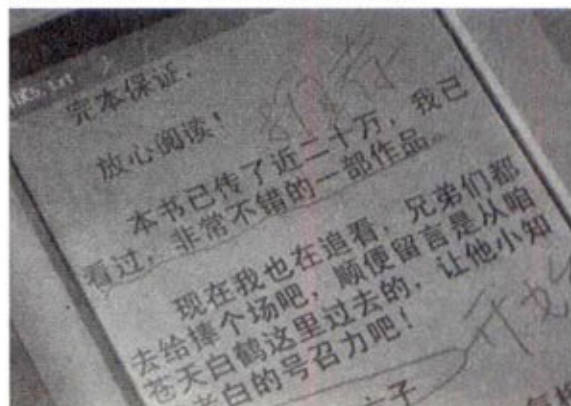 完本保证.
放心阅读!
本书已传了近二十万,我已
看过,非常不错的一部作品..
现在我也在追看,兄弟们都
去给捧个场吧,顺便留言是从咱
苍天白鹤这里过去的,让他小知
老白的号召力吧!
开始